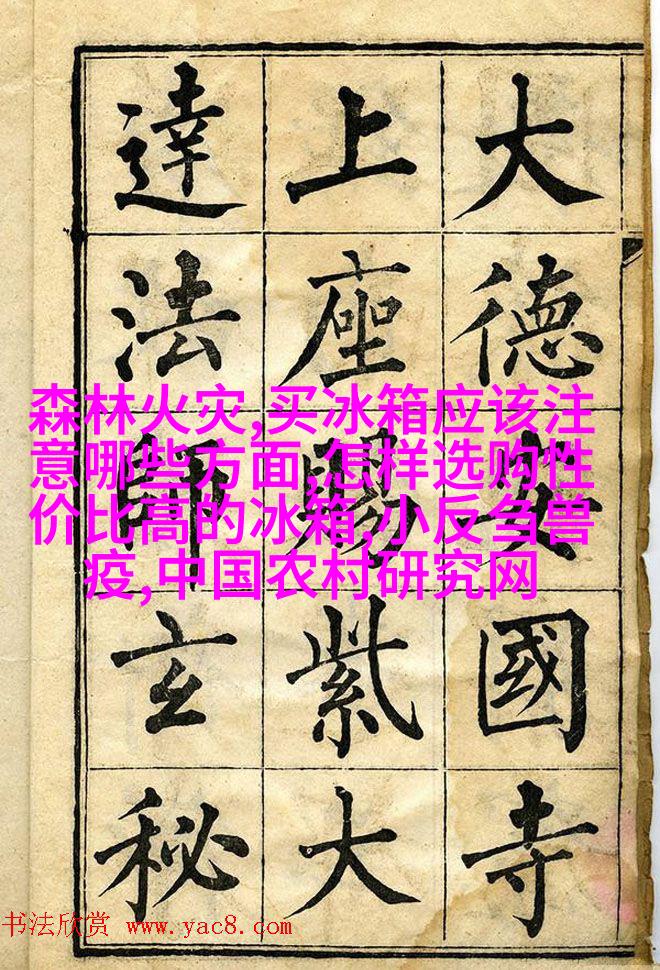 大德安國寺
上座賜紫大
達法師玄秘
森林火灾,买冰箱应该注
意哪些方面,怎样选购性
价比高的冰箱,小反刍兽
疫,中国农村研究网
书法欣赏 www.yac8.com